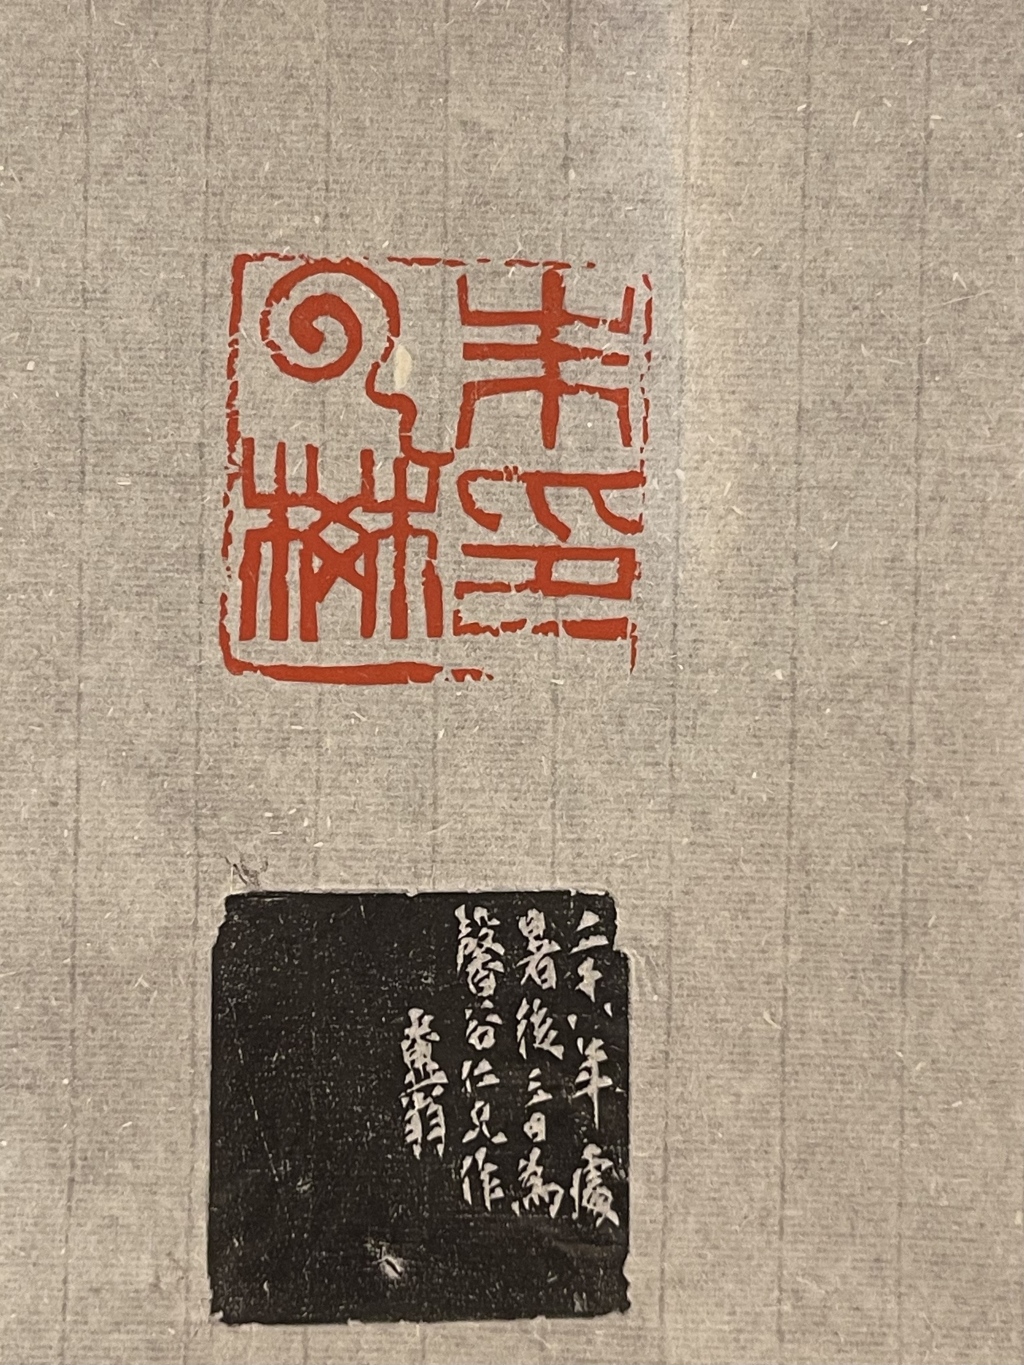 朱印
二十八年處
暑後三日為
馨谷仁兄作
翁